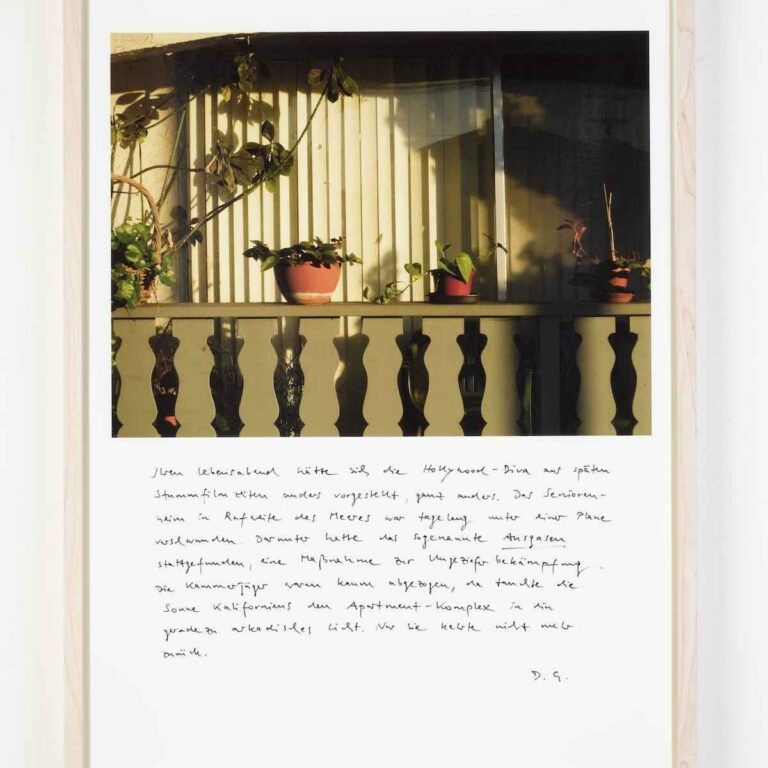 Ihren Lebensabend hätte sich die Hollywood-Diva aus späten
Stummfilmzeiten anders vorgestellt, ganz anders. Das Senioren-
heim in Rufweite des Meeres war tagelang unter einer Plane
verschwunden. Darunter hatte das sogenannte Ausgasen
stattgefunden, eine Maßnahme zur Ungezieferbekämpfung.
Die Kammerjäger waren kaum abgezogen, da tauchte die
Sonne Kaliforniens den Apartment-Komplex in ein
geradezu arkadisches Licht. Nur sie kehrte nicht mehr
zurück.
D. G.